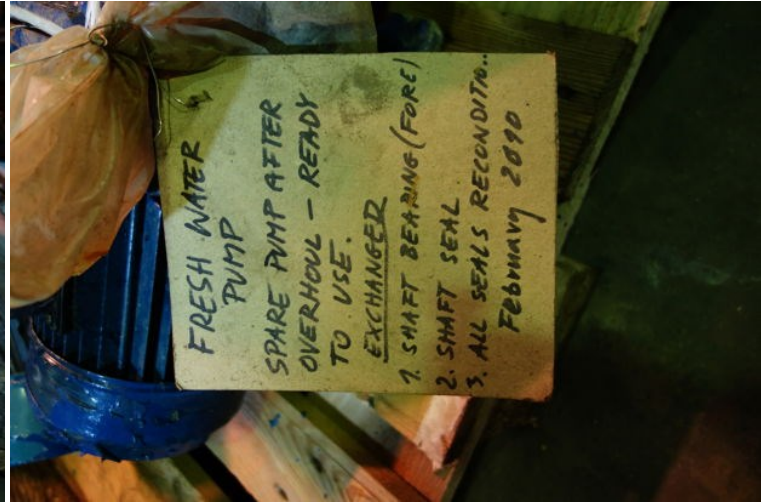 FRESH WATER
PUMP
SPARE PUMP AFTER
OVERHOUL - READY
TO USE.
EXCHANGED
1. SHAFT BEARING (FORE)
2. SHAFT SEAL
3. ALL SEALS RECONDITIO..
February 2010